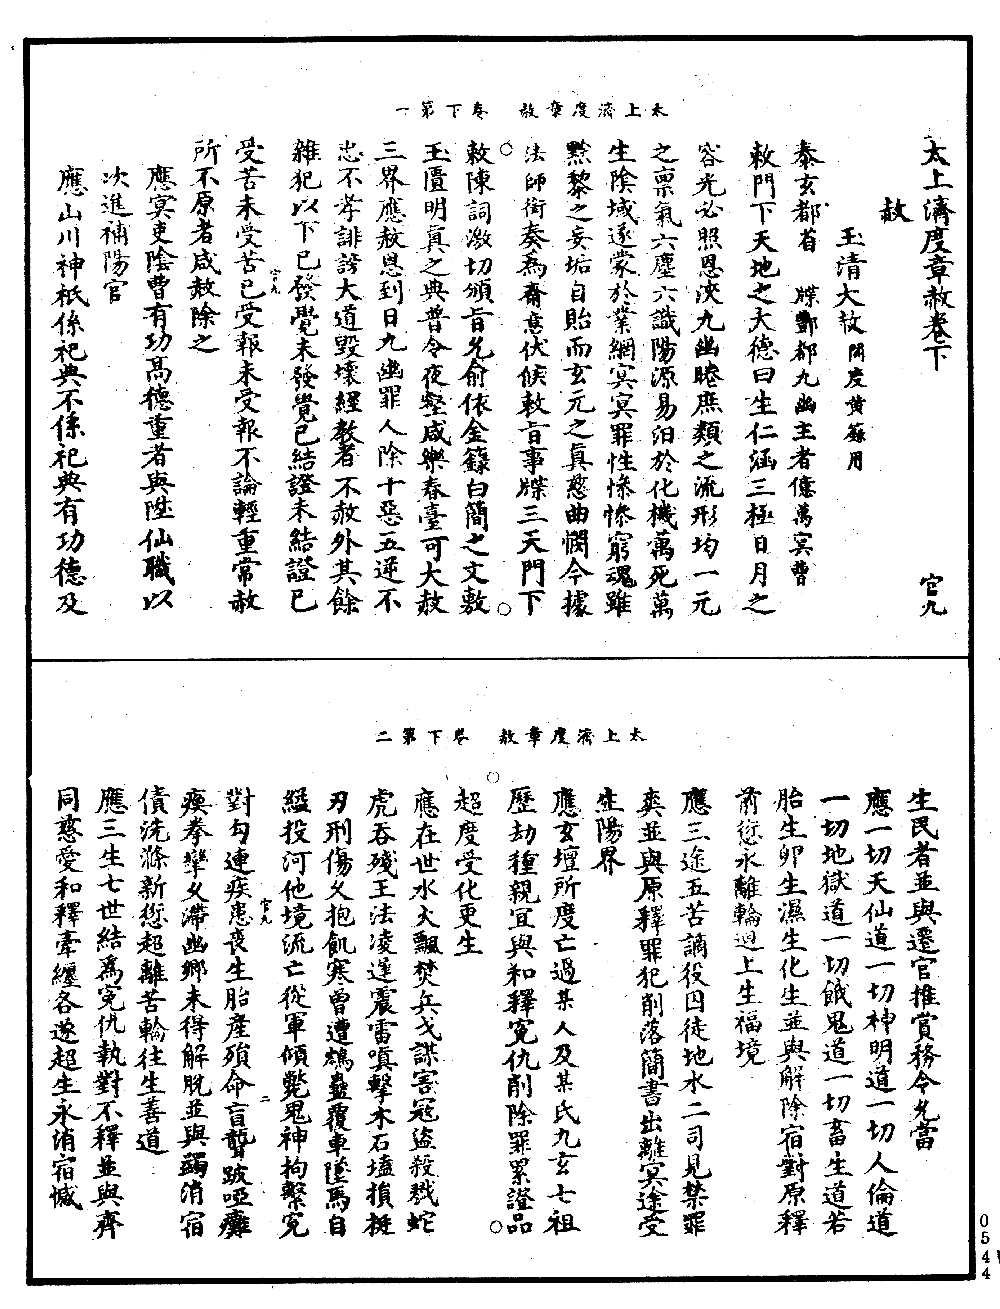 太上濟度章赦卷下　官九
赦
玉清大赦開度黃籙用
泰玄都省　牒酆都九幽主者億萬冥曹
敕門下天地之大德曰生仁涵三極日月之
容光必照恩浹九幽睠庶類之流形均一元
之稟氣六塵六識陽源易汨於化機萬死萬
生陰域遂蒙於業網冥冥罪性慘慘窮魂雖
黥黎之妄垢自貽而玄元之真慈曲憫今據
法師銜奏為齋意伏候敕旨事牒三天門下
敕陳詞激切頒旨允俞依金籙白簡之文敷
玉匱明真之典普令夜壑咸樂春臺可大赦
三界應赦恩到日九幽罪人除十惡五逆不
忠不孝誹謗大道毀壞經教者不赦外其餘
雜犯以下已發覺未發覺已結證未結證已
受苦未受苦已受報未受報不論輕重常赦
所不原者咸赦除之
應冥吏陰曹有功高德重者與陞仙職以
次進補陽官
應山川神祇係祀典不係祀典有功德及
太上濟度章赦　卷下第一
官九
生民者並與遷官推賞務令允當
應一切天仙道一切神明道一切人倫道
一切地獄道一切餓鬼道一切畜生道若
胎生卵生濕生化生並與解除宿對原釋
前愆永離輪迴上生福境
應三途五苦謫役囚徒地水二司見禁罪
爽並與原釋罪犯削落簡書出離冥途受
生陽界
應玄壇所度亡過某人及某氏九玄七祖
歷劫種親宜與和釋冤仇削除罪累證品
超度受化更生
應在世水火飄焚兵戈謀害冦盜殺戮蛇
虎吞殘王法凌遲震雷嗔擊木石磕損挺
刃刑傷久抱飢寒曾遭鴆蠱覆車墜馬自
縊投河他境流亡從軍傾斃鬼神拘繫冤
對勾連疾患喪生胎產殞命盲聾跛啞癱
瘓拳攣久滯幽鄉未得解脫並與蠲消宿
債洗滌新愆超離苦輪往生善道
應三生七世結為冤仇執對不釋並與齊
同慈愛和釋牽纏各遂超生永消宿憾
太上濟度章赦　卷下第二
官九
二
0544